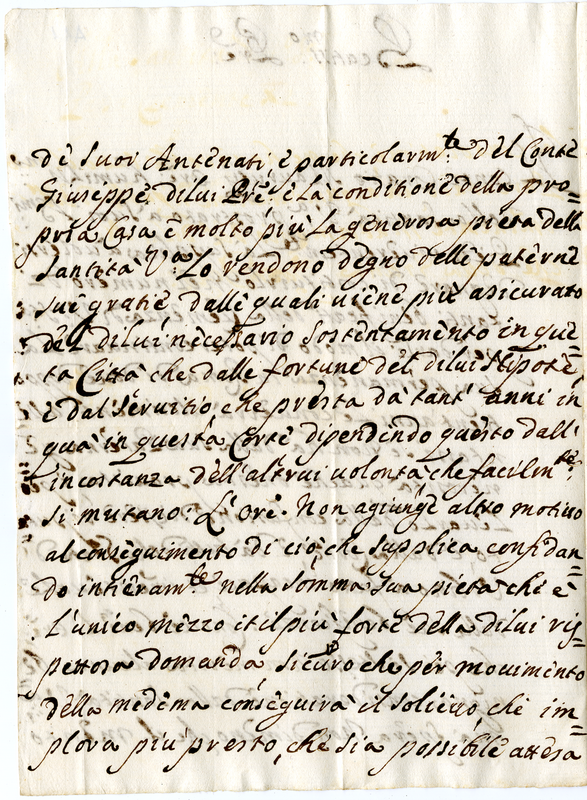 de suoi Antenati, e particolarm.te del Conte
Giuseppe di lui Pre. e la conditione della pro=
pria Casa e molto più la generosa pietà della
Santità V.a Lo rendono degno delle paterne
sue gratie dalle quali viene più asicurato
del di lui necessario sostentamento in que=
ta Città che dalle fortune del di lui Nipote,
e dal servitio, che presta da tant' anni in
quà in questa Corte dipendindo questo dall'
incostanza dell'altrui volontà, che facilm.te
si mutano. L'Ore. Non agiunge altro motivo
al conseguimento di ciò, che supplica confidan=
do intieram.te nella somma Sua pietà che è
L'unico mezzo et il più forte della di lui ris=
pettosa domanda, sicuro che per movimento
della medema conseguirà il solievo, che im=
plora più presto, che sia possibile attesa